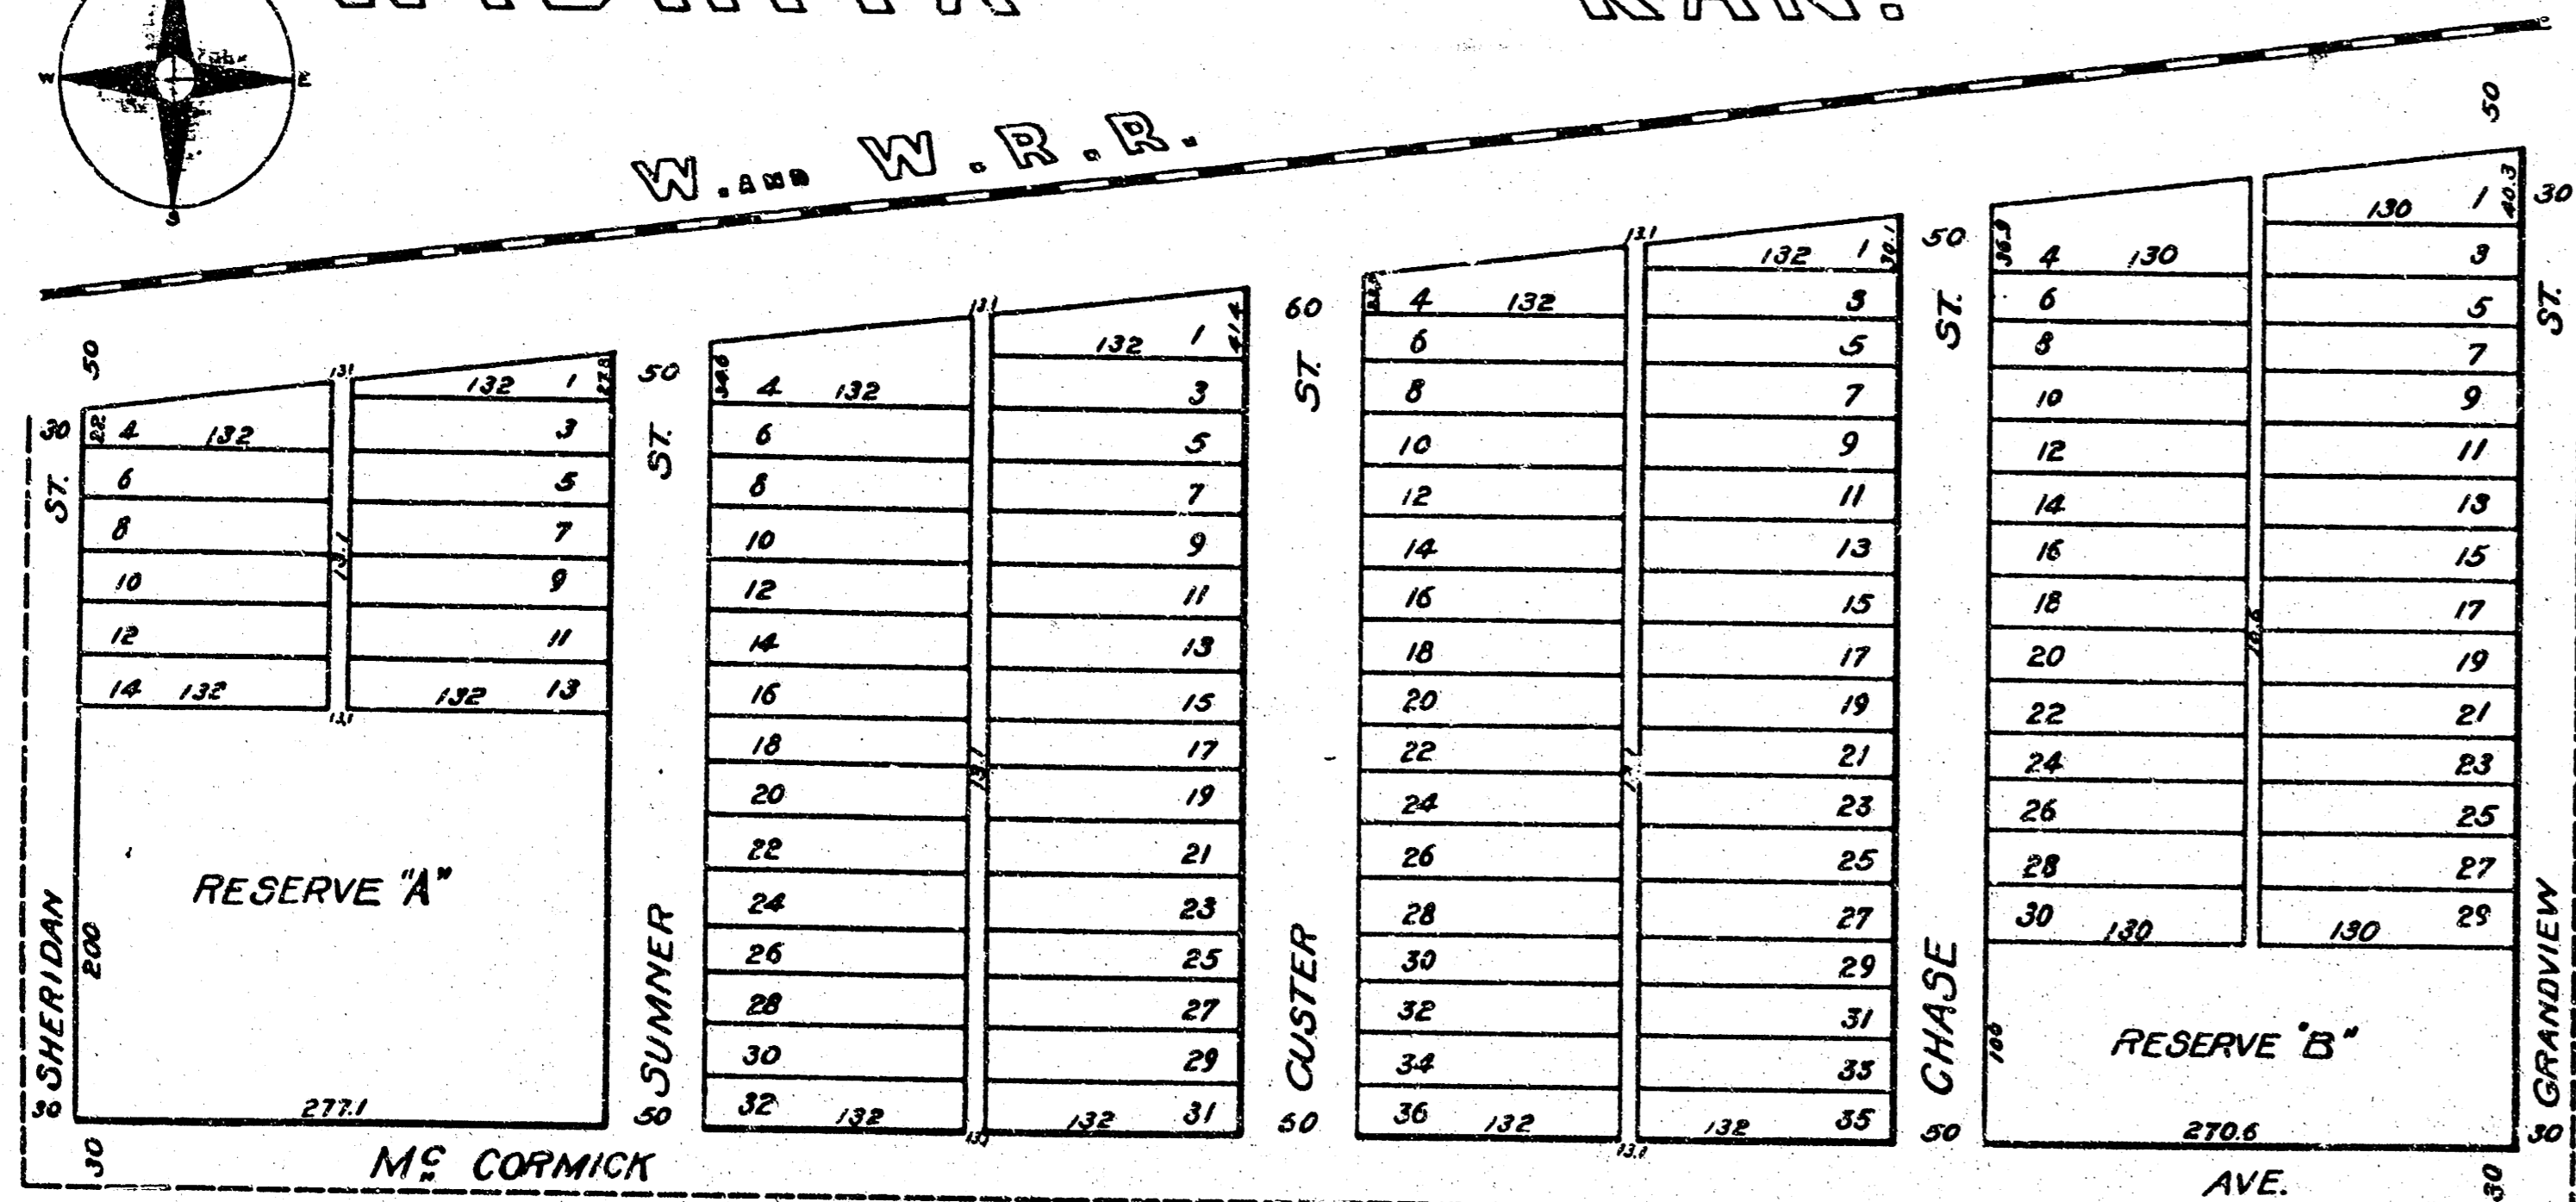 KAN.
W E
S
W. AND W. R. R.
SHERIDAN ST.
30 50 30 30
22 4 132
6
8
10
12
14 132
13.1 13.1 13.1
132 1
3
5
7
9
11
132 13
RESERVE "A"
200
277.1
SUMNER ST.
50 50
4 132
6
8
10
12
14
16
18
20
22
24
26
28
30
32 132
13.1 13.1
132 1 41.4
3
5
7
9
11
13
15
17
19
21
23
25
27
29
132 31
CUSTER ST.
60
4 132
6
8
10
12
14
16
18
20
22
24
26
28
30
32
34
36 132
13.1 13.1
132 1 30.1
3
5
7
9
11
13
15
17
19
21
23
25
27
29
31
33
132 35
CHASE ST.
50 50
36.9 4 130
6
8
10
12
14
16
18
20
22
24
26
28
30 130
10.6
130 1 40.3
3
5
7
9
11
13
15
17
19
21
23
25
27
130 29
RESERVE "B"
100
270.6
GRANDVIEW ST.
50 30 30 30
Mc CORMICK AVE.